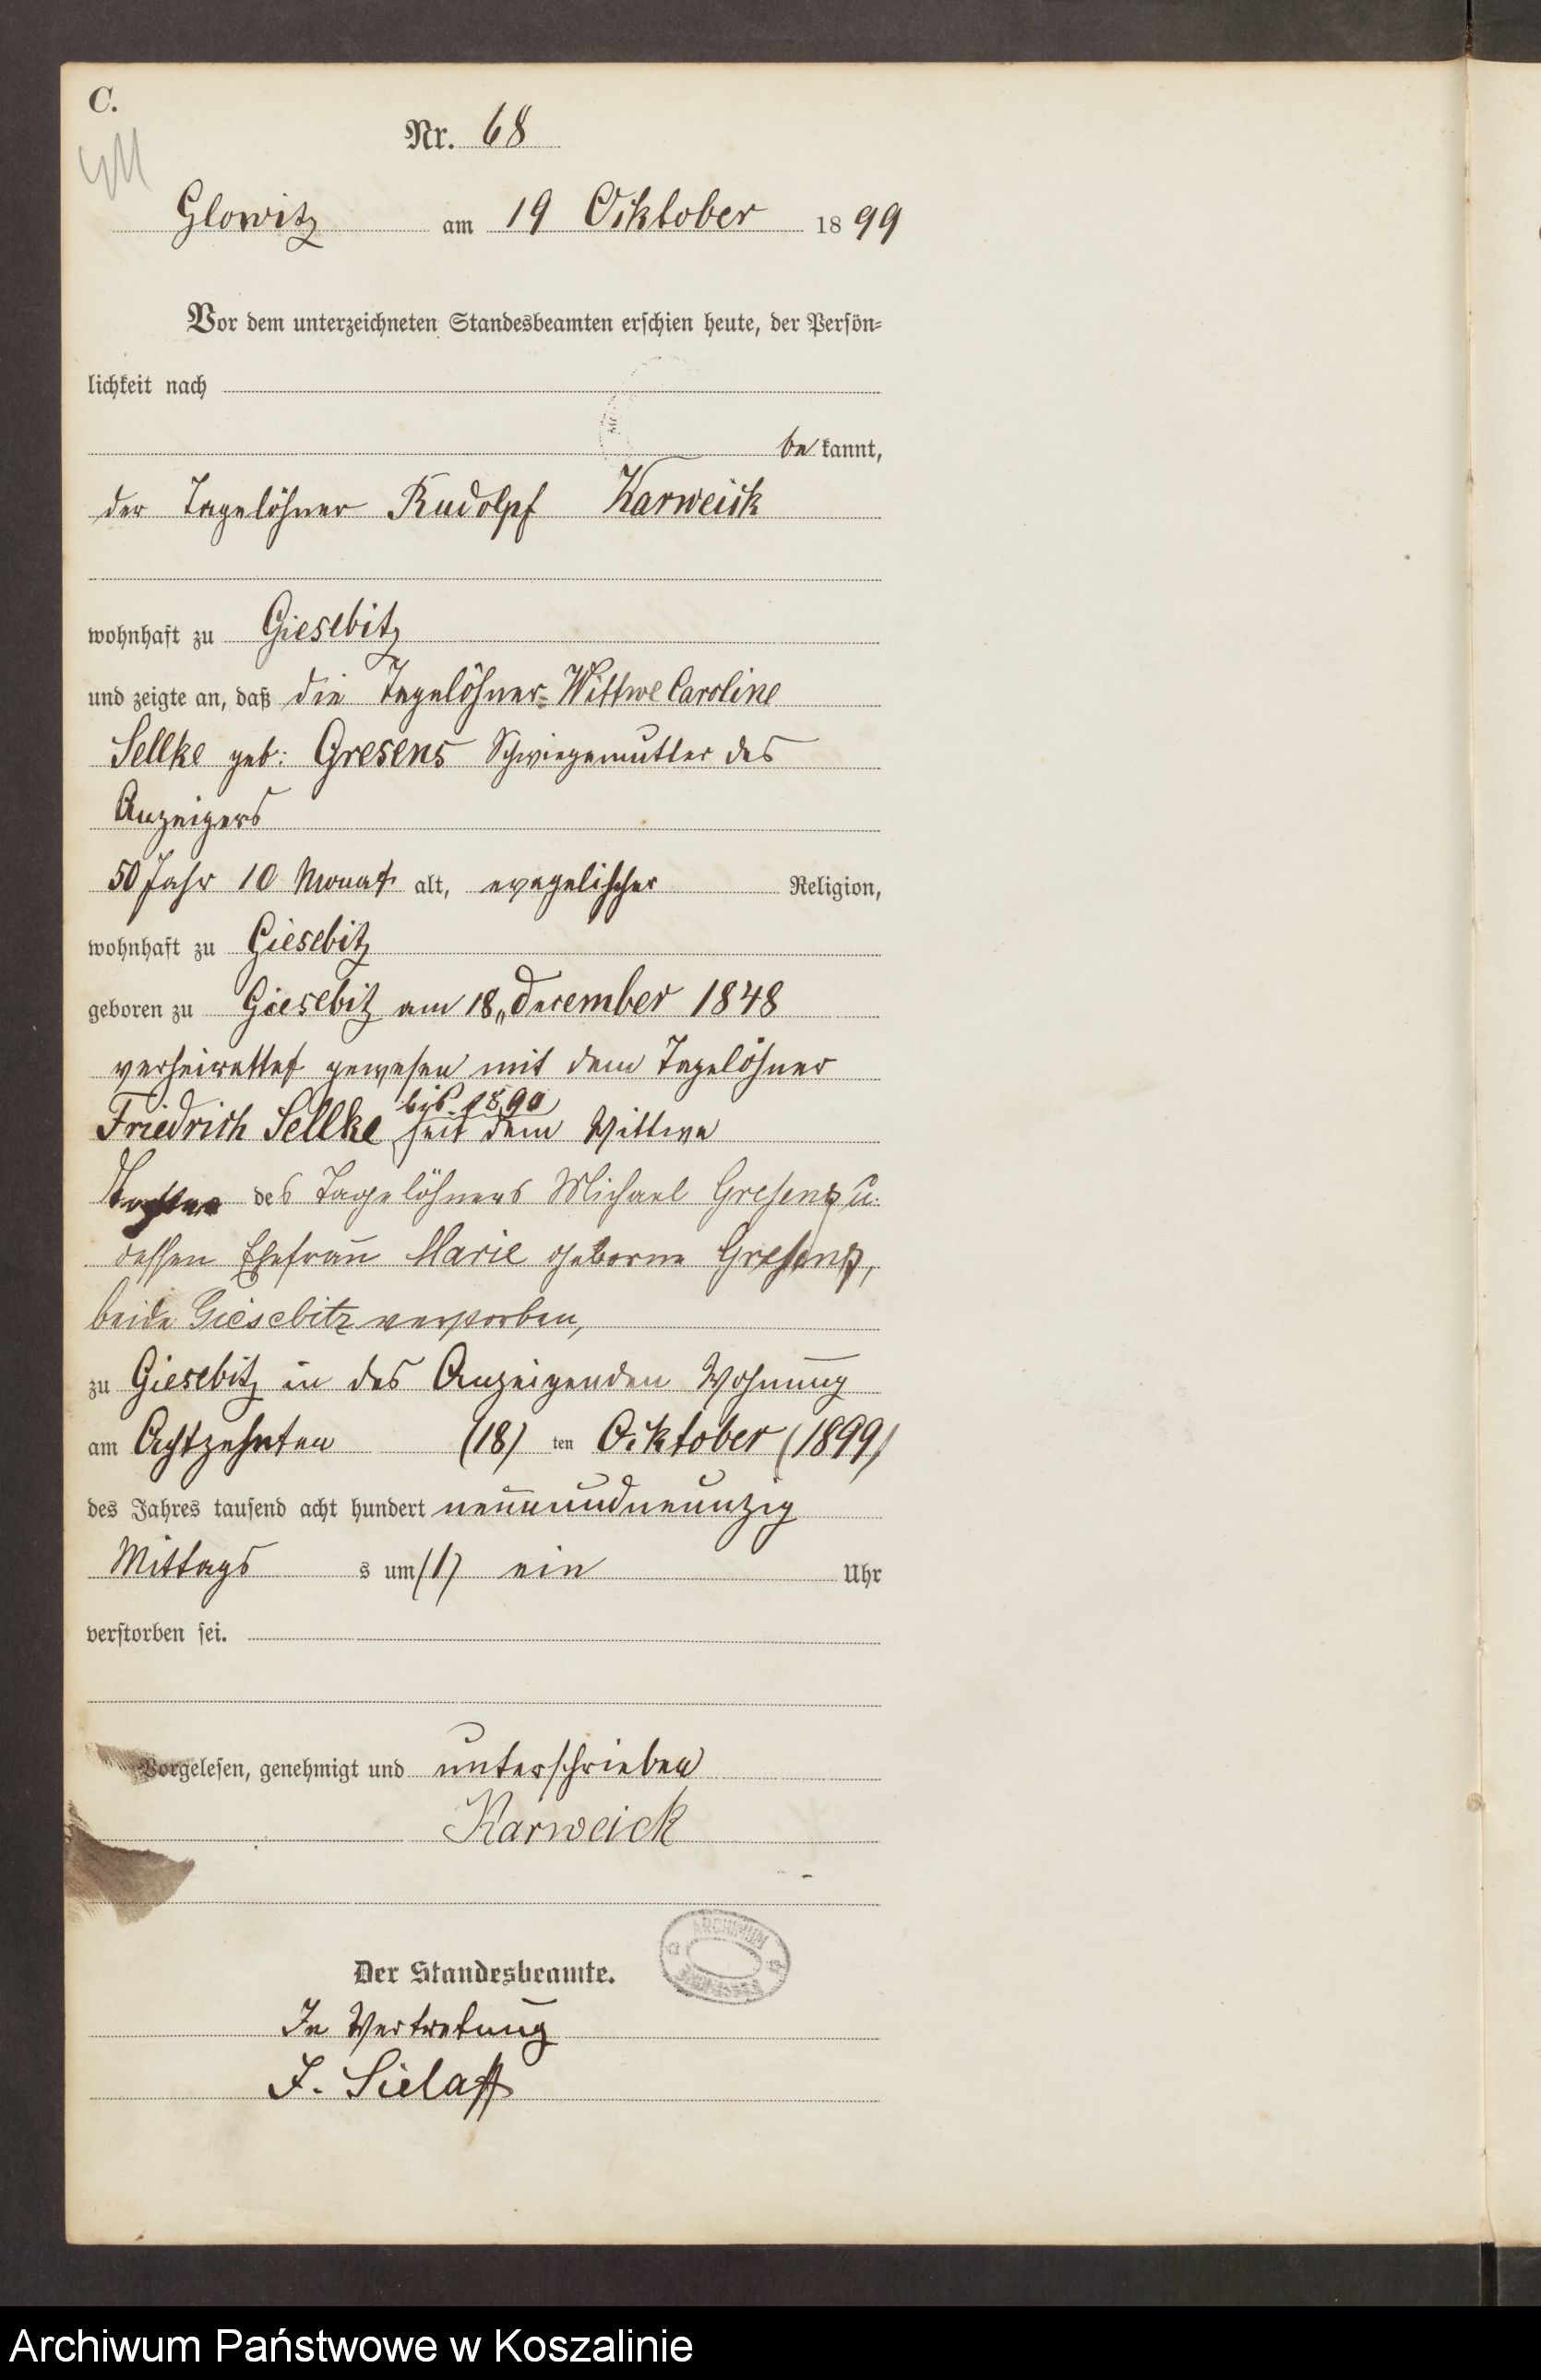 C.
Nr. 68
Glowitz am 19 Oktober 1899
Vor dem unterzeichneten Standesbeamten erschien heute, der Persön-
lichkeit nach
be kannt,
der Tagelöhner Rudolpf Karweick
wohnhaft zu Giesebitz
und zeigte an, daß die Tagelöhner-Wittwe Caroline
Sellke geb: Gresens Schwiegemutter des
Anzeigers
50 Jahr 10 Monat alt, evagelischer Religion,
wohnhaft zu Giesebitz
geboren zu Giesebitz am 18„ December 1848
verheirattet gewesen mit dem Tagelöhner
bis 1890
Friedrich Sellke seit dem Wittwe
Tochter des Tagelöhners Michael Gresens u.
dessen Ehefrau Marie geborne Gresens,
beide Giesebitz verstorben,
zu Giesebitz in des Anzeigenden Wohnung
am Achtzehnten (18) ten Oktober (1899)
des Jahres tausend acht hundert neunundneunzig
Mittags s um (1) ein Uhr
verstorben sei.
Vorgelesen, genehmigt und unterschrieben
Karweick
Der Standesbeamte.
In Vertretung
J. Sielaff
ARCHIWUM
Archiwum Państwowe w Koszalinie